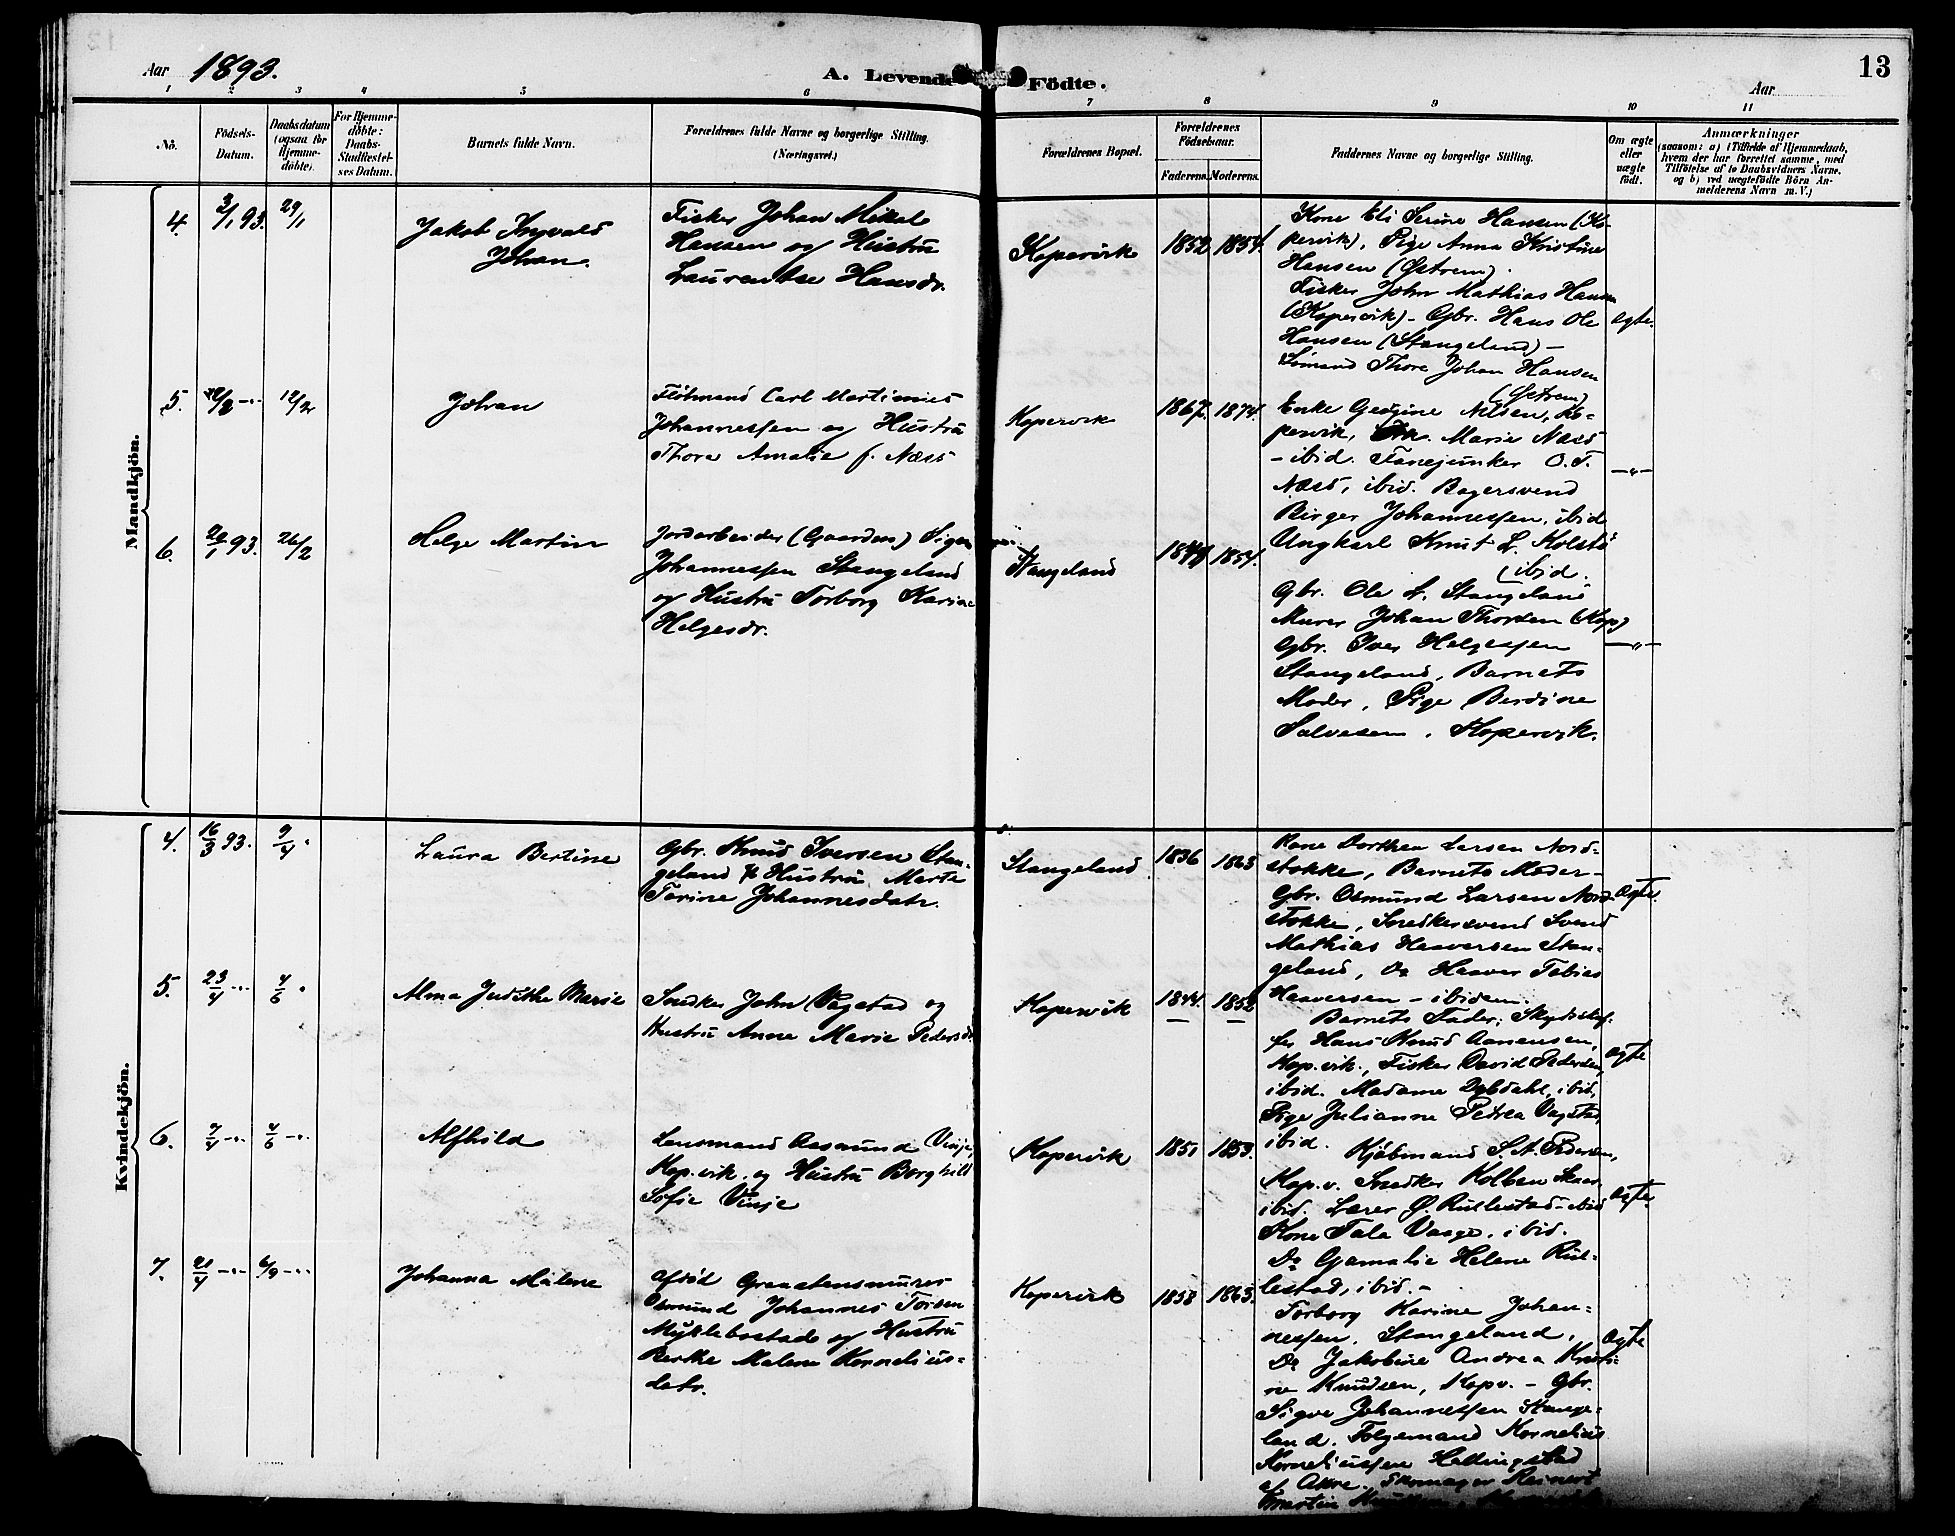 Aar 1893.
A. Levende Födte.
13
Aar
1 2 3 4 5 6 7 8 9 10 11
No.
Födsels-Datum.
Daabsdatum (ogsaa for Hjemme-döbte).
For Hjemme-döbte: Daabs-Stadfæstel-ses Datum.
Barnets fulde Navn.
Forældrenes fulde Navne og borgerlige Stilling.
(Næringsvei.)
Forældrenes Bopæl.
Forældrenes Födselsaar.
Faderens. Moderens.
Faddernes Navne og borgerlige Stilling.
Om ægte eller uægte födt.
Anmærkninger
(saasom: a) i Tilfælde af Hjemmedaab, hvem der har forrettet samme, med Tilföielse af to Daabsvidners Navne, og b) ved uægtefödte Börn An-melderens Navn m. V.)
Mandkjön.
4. 3/1 93. 29/1
Jakob Ingvald
Johan.
Fisker Johan Mikal
Hansen og Hustru
Laurentse Hansdr.
Kopervik 1852 1854.
Kone Eli Serine Hansen (Ko-
pervik), Pige Anna Kristine
Hansen (Østrem).
Fisker John Mathias Hansen
(Kopervik) - Gbr. Hans Ole
Hansen (Stangeland) -
Sömand Thore Johan Hansen
(Østrem)
Ægte.
5. 12/2
Johan
Carl Martinius
Johannessen og Hustru
Thora Amalie f. Næss
Kopervik 1867. 1874.
Enke Georgine Nilsen, Ko-
pervik, Marie Næss
- ibid. Fanejunker O. T.
Næss, ibid. Bagersvend
Birger Johannessen, ibid
Ungkarl Knut L. Kolstø
(ibid.
-"-
6. 26/1 93. 26/2
Helge Martin
Jordarbeider (Gaarden) Sigve
Johannessen Stangeland
og Hustru Torborg Karine
Helgesdr.
Stangeland 1854.
Gbr. Ole L. Stangeland
Murer Johan Thorsen (Kop)
Gbr. Iver Helgessen
Stangeland, Barnets
Moder, Pige Berdine
Salvesen, Kopervik.
-"-
Kvindekjön.
4. 16/3 93. 9/4
Laura Bertine
Gbr. Knud Iversen Stan-
geland & Hustru Marte
Torine Johannesdatr.
Stangeland 1836 1863
Kone Dorthea Larsen Nord-
stokke, Barnets Moder -
Gbr. Osmund Larsen Nord-
stokke, Snedkersvend Svend
Mathias Haaversen Stan-
geland, Do Haaver Tobias
Haaversen - ibidem.
Ægte.
5. 23/4 -"- 4/6
Alma Judithe Marie
Snedker John Vagstad og
Hustru Anne Marie Pedersdr.
Kopervik 1844. 1852
Barnets Fader, Skydsskaf-
fer Hans Knud Aanensen,
Kop.vik., Fisker David Pedersen,
ibid. Madame Dybdahl, ibid.,
Pige Julianne Petrea Vagstad,
ibid.
Ægte
6. 7/4 -"- 4/6 -"-
Alfhild
Lensmand Aasmund Vinje,
Kop.vik. og Hustru Borghild
Sofie Vinje
Kopervik 1851 1853.
Kjöbmand S. A. Pedersen,
Kop.v. Snedker Kolben Skaar,
ibid. Lærer Ø. Rullestad - ibid
Kone Tala Vaage, ibid.
Do Gjamalie Helene Rul-
lestad, ibid. -
Ægte.
7. 21/4 -"- -"-
Johanna Malene
afdöd
Osmund Johannes Torsen
Myklebostad og Hustru
Berthe Malene Kornelius-
datr.
Kopervik 1858 1863.
Torborg Karine Johan-
nessen, Stangeland,
Do Jakobine Andrea Kristi-
ne Knudsen, Kopv. - Gbr.
Sigve Johannessen Stange-
land. Fölgemand Kornelius
Korneliussen Hellingstad
af Akre. Skomager Reinert
Martin
Ægte